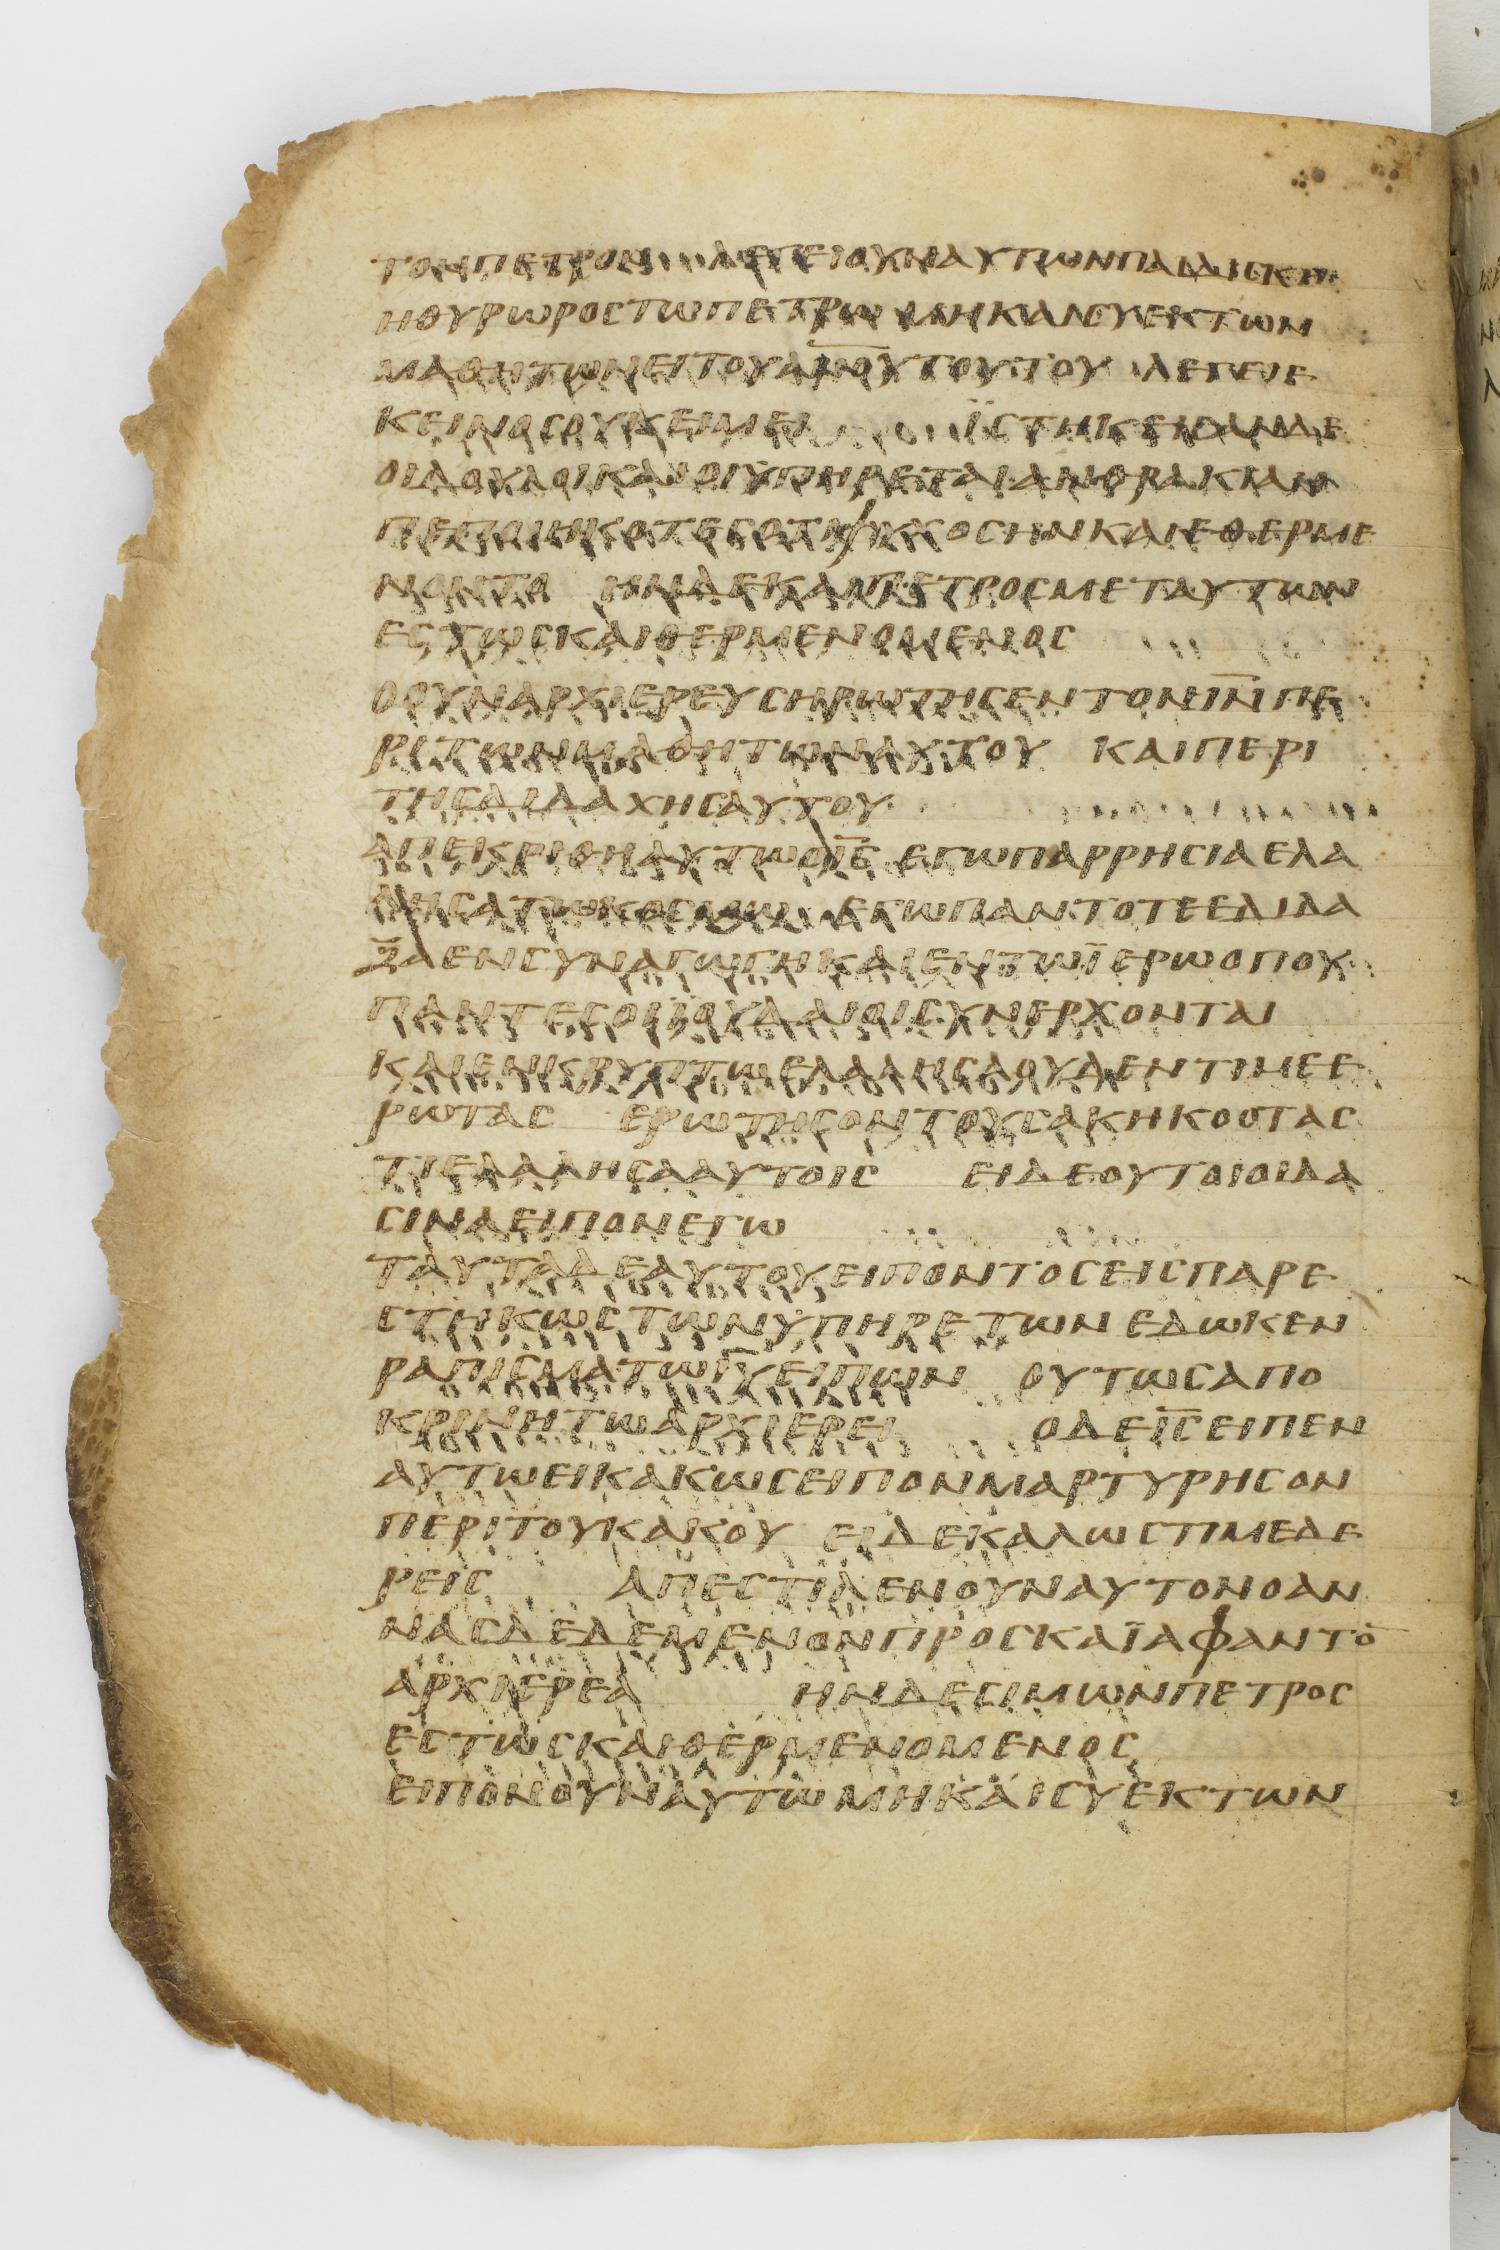 ΤΟΝΠΕΤΡΟΝ ΛΕΓΕΙΟΥΝΑΥΤΩΗΠΑΙΔΙΣΚΗ
ΗΘΥΡΩΡΟΣΤΩΠΕΤΡΩ ΜΗΚΑΙΣΥΕΚΤΩΝ
ΜΑΘΗΤΩΝΕΙΤΟΥΑΝ̅Ο̅Υ̅ΤΟΥΤΟΥ ΛΕΓΕΙΕ
ΚΕΙΝΟΣΟΥΚΕΙΜΕΙ ΪΣΤΗΚΕΙΣΑΝΔΕ
ΟΙΔΟΥΛΟΙΚΑΙΟΙΫΠΗΡΕΤΑΙΑΝΘΡΑΚΙΑΝ
ΠΕΠΟΙΗΚΟΤΕΣΟΤΙΨΥΧΟΣΗΝΚΑΙΕΘΕΡΜΕ
ΝΟΝΤΟ ΗΝΔΕΚΑΙΠΕΤΡΟΣΜΕΤΑΥΤΩΝ
ΕΣΤΩΣΚΑΙΘΕΡΜΕΝΟΜΕΝΟΣ
ΟΟΥΝΑΡΧΙΕΡΕΥΣΗΡΩΤΗΣΕΝΤΟΝΙ̅Ν̅ΠΕ
ΡΙΤΩΝΜΑΘΗΤΩΝΑΥΤΟΥ ΚΑΙΠΕΡΙ
ΤΗΣΔΙΔΑΧΗΣΑΥΤΟΥ
ΑΠΕΚΡΙΘΗΑΥΤΩΟΙ̅Σ̅ ΕΓΩΠΑΡΡΗΣΙΑΕΛΑ
ΛΗΣΑΤΩΚΟΣΜΩ ΕΓΩΠΑΝΤΟΤΕΕΔΙΔΑ
ΞΑΕΝΣΥΝΑΓΩΓΗΚΑΙΕΝΤΩΪΕΡΩΟΠΟΥ
ΠΑΝΤΕΣΟΙΪΟΥΔΑΙΟΙΣΥΝΕΡΧΟΝΤΑΙ
ΚΑΙΕΝΚΡΥΠΤΩΕΛΑΛΗΣΑΟΥΔΕΝΤΙΜΕΕ
ΡΩΤΑΣ ΕΡΩΤΗΣΟΝΤΟΥΣΑΚΗΚΟΟΤΑΣ
ΤΙΕΛΑΛΗΣΑΑΥΤΟΙΣ ΕΙΔΕΟΥΤΟΙΟΙΔΑ
ΣΙΝΑΕΙΠΟΝΕΓΩ
ΤΑΥΤΑΔΕΑΥΤΟΥΕΙΠΟΝΤΟΣΕΙΣΠΑΡΕ
ΣΤΗΚΩΣΤΩΝΫΠΗΡΕΤΩΝΕΔΩΚΕΝ
ΡΑΠΙΣΜΑΤΩΙ̅Υ̅ΕΙΠΩΝ ΟΥΤΩΣΑΠΟ
ΚΡΙΝΗΤΩΑΡΧΙΕΡΕΙ ΟΔΕΙ̅Σ̅ΕΙΠΕΝ
ΑΥΤΩΕΙΚΑΚΩΣΕΙΠΟΝΜΑΡΤΥΡΗΣΟΝ
ΠΕΡΙΤΟΥΚΑΚΟΥ ΕΙΔΕΚΑΛΩΣΤΙΜΕΔΕ
ΡΕΙΣ ΑΠΕΣΤΙΛΕΝΟΥΝΑΥΤΟΝΟΑΝ
ΝΑΣΔΕΔΕΜΕΝΟΝΠΡΟΣΚΑΪΑΦΑΝΤΟ̅
ΑΡΧΙΕΡΕΑ ΗΝΔΕΣΙΜΩΝΠΕΤΡΟΣ
ΕΣΤΩΣΚΑΙΘΕΡΜΕΝΟΜΕΝΟΣ
ΕΙΠΟΝΟΥΝΑΥΤΩΜΗΚΑΙΣΥΕΚΤΩΝ